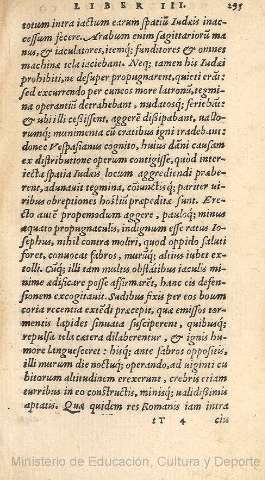 LIBER III. 295
totum intra iactum earum spatiū Iudæis inac-
cessum fecere. Arabum enim sagittariorū ma
nus, & iaculatores, itemq; funditores & omnes
machinæ tela iaciebant. Neq; tamen his Iudæi
prohibiti, ne desuper propugnarent, quieti erāt:
sed excurrendo per cuneos more latronū, tegmi
na operantiū detrahebant, nudatosq; feriebāt:
& ubi illi cessissent, aggerē dissipabant, uallo-
rumq; munimenta cū cratibus igni tradebant:
donec Vespasianus cognito, huius dāni causam
ex distributione operum contigisse, quod inter-
iecta spatia Iudæis locum aggrediendi præbe-
rent, adunauit tegmina, cōiunctisq; pariter ui-
ribus obreptiones hostiū præpeditæ sunt. Ere-
cto autē propemodum aggere, pauloq; minus
æquato propugnaculis, indignum esse ratus Io-
sephus, nihil contra moliri, quod oppido saluti
foret, conuocat fabros, murūq; altius iubet ex-
tolli. Cūq; illi tam multis obstātibus iaculis mi-
nime ædificare posse assirmārēt, hanc eis defen-
sionem excogitauit. Sudibus fixis per eos boum
coria recentia extēdi præcepit, quæ emissos tor-
mentis lapides sinuata susciperent, quibusq;
repulsa tela cætera dilaberentur, & ignis hu-
more languesceret: hisq; ante fabros oppositis,
illi murum die noctuq; operando, ad uiginti cu
bitorum altitudinem erexerunt, crebris etiam
turribus in eo constructis, minisq; ualidissimis
aptatis. Quæ quidem res Romanis iam intra
tT 4 ciui
Ministerio de Educación, Cultura y Deporte